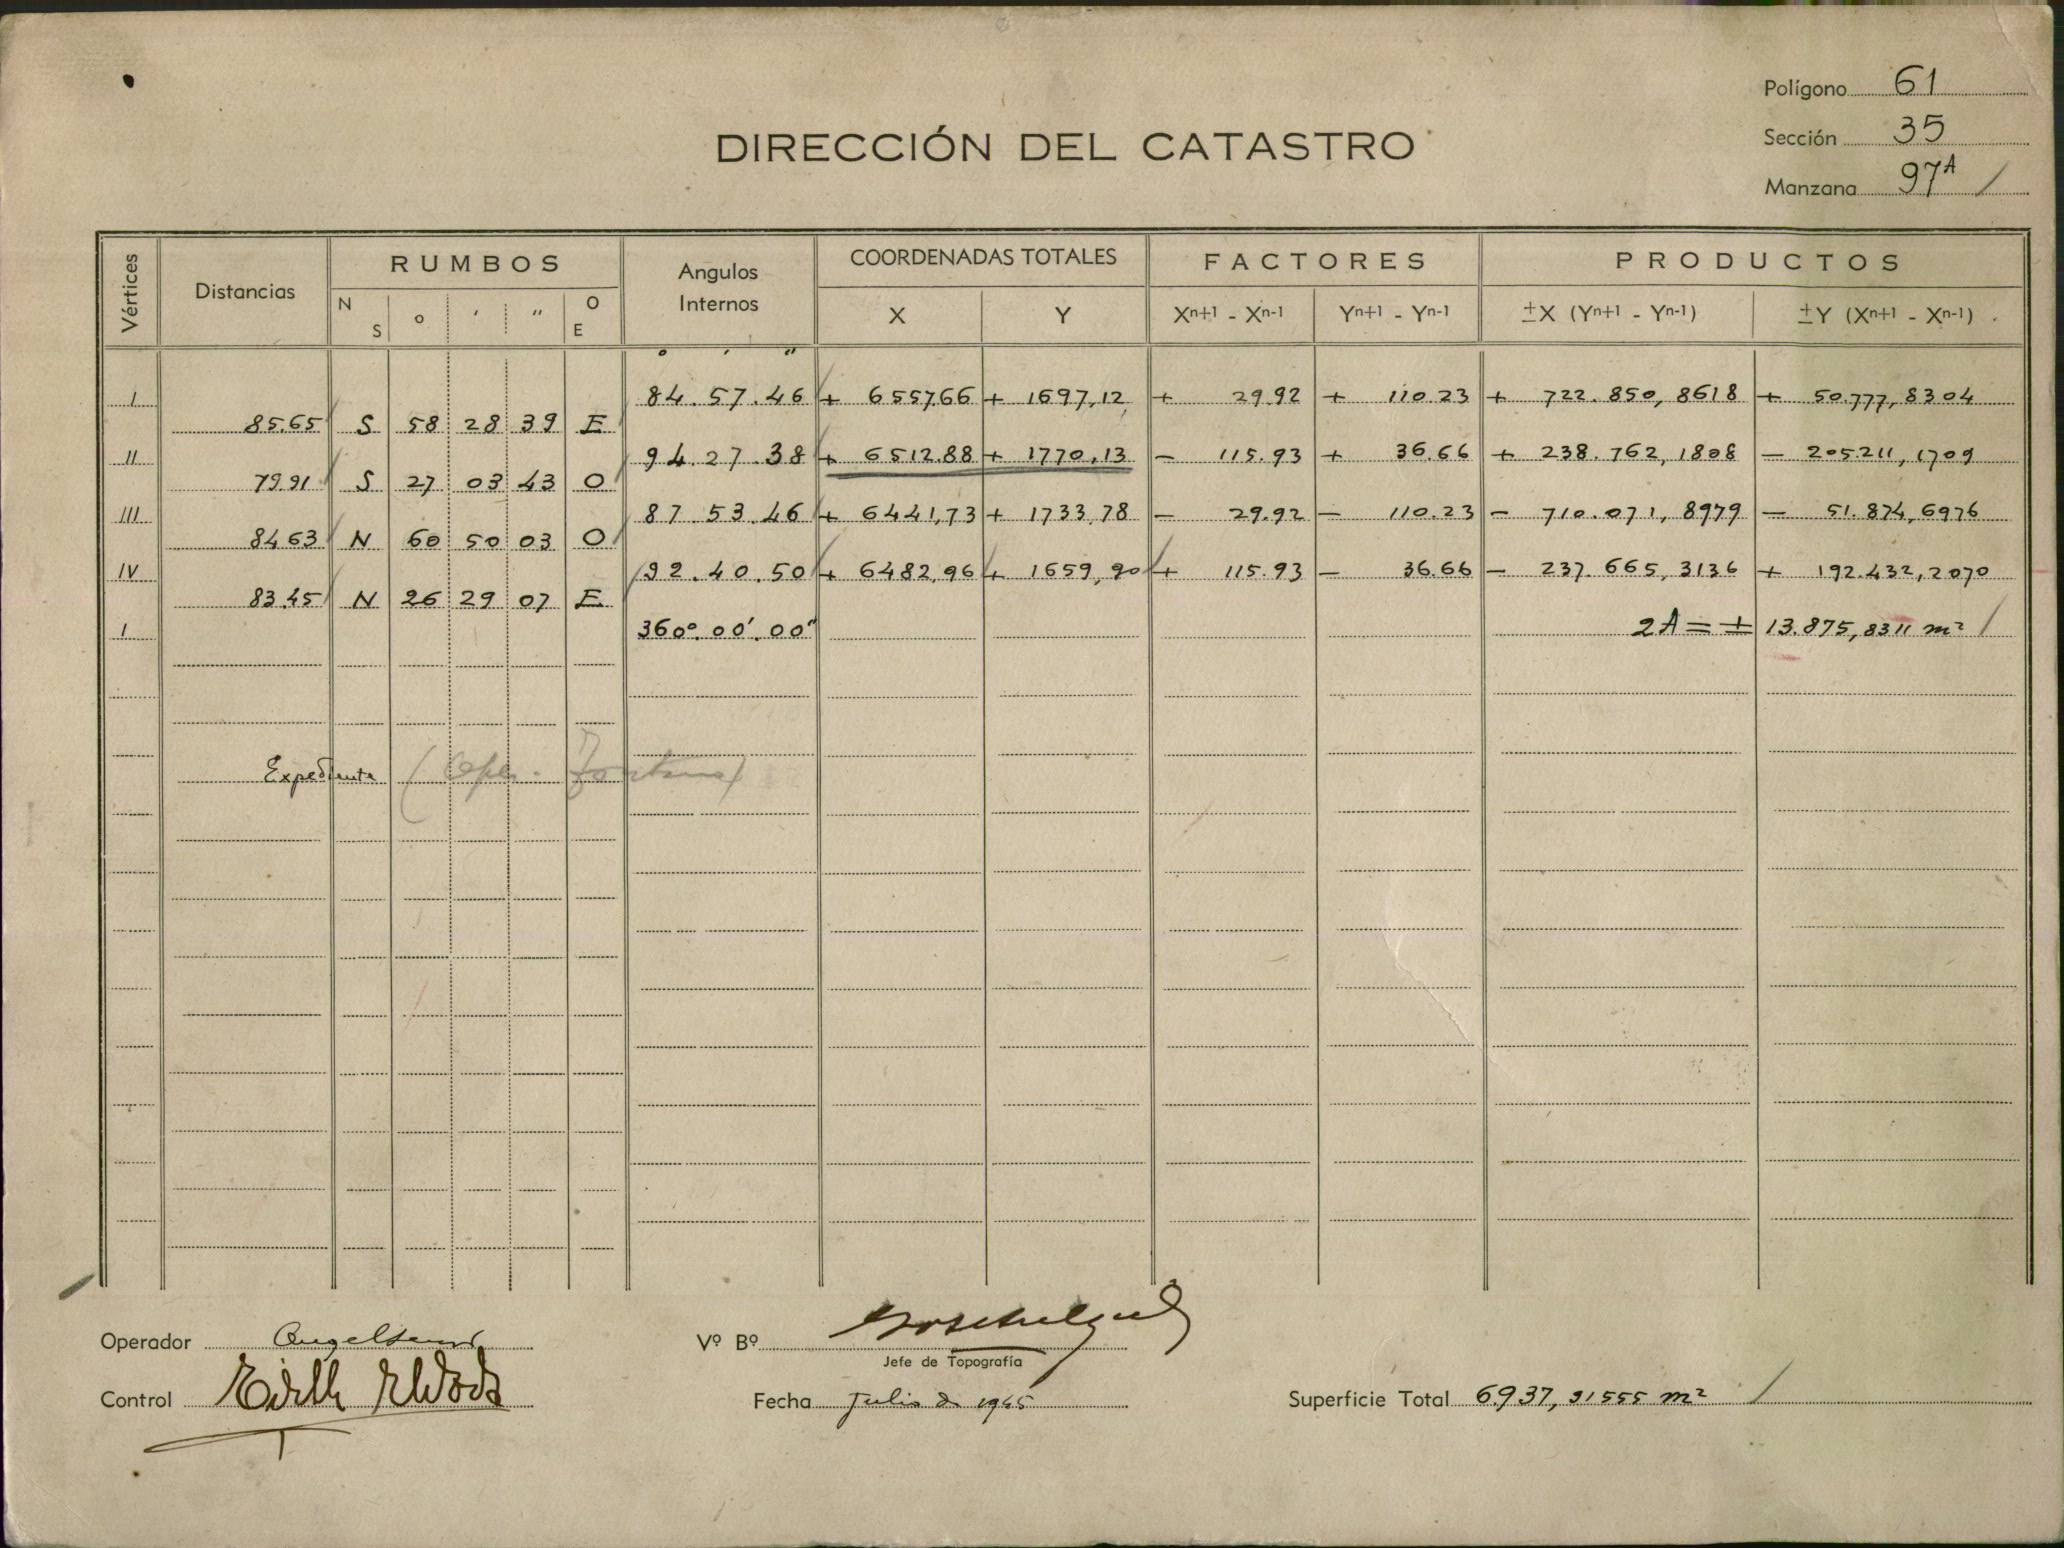 Polígono 61
DIRECCIÓN DEL CATASTRO
Sección 35
Manzana 97A /
Vértices Distancias RUMBOS Angulos Internos COORDENADAS TOTALES FACTORES PRODUCTOS
N S o ′ ″ O E X Y Xn+1 - Xn-1 Yn+1 - Yn-1 ±X (Yn+1 - Yn-1) ±Y (Xn+1 - Xn-1)
° ′ ″
I 84.57.46 + 6557.66 + 1697,12 + 29.92 + 110.23 + 722.850,8618 + 50.777,8304
85.65 S 58 28 39 E
II 94.27.38 + 6512.88 + 1770.13 - 115.93 + 36.66 + 238.762,1808 - 205211,1709
79.91 S 27 03 43 O
III 87.53.46 + 6441,73 + 1733,78 - 29.92 - 110.23 - 710.071,8979 - 51.874,6976
84.63 N 60 50 03 O
IV 92.40.50 + 6482,96 + 1659,90 + 115.93 - 36.66 - 237.665,3136 + 192.432,2070
83.45 N 26 29 07 E
I 360°.00′.00″ 2A = ± 13.875,8311 m² /
Expediente
Operador
Vº Bº
Jefe de Topografía
Control
Fecha Julio de 1945
Superficie Total 6.937,91555 m² /